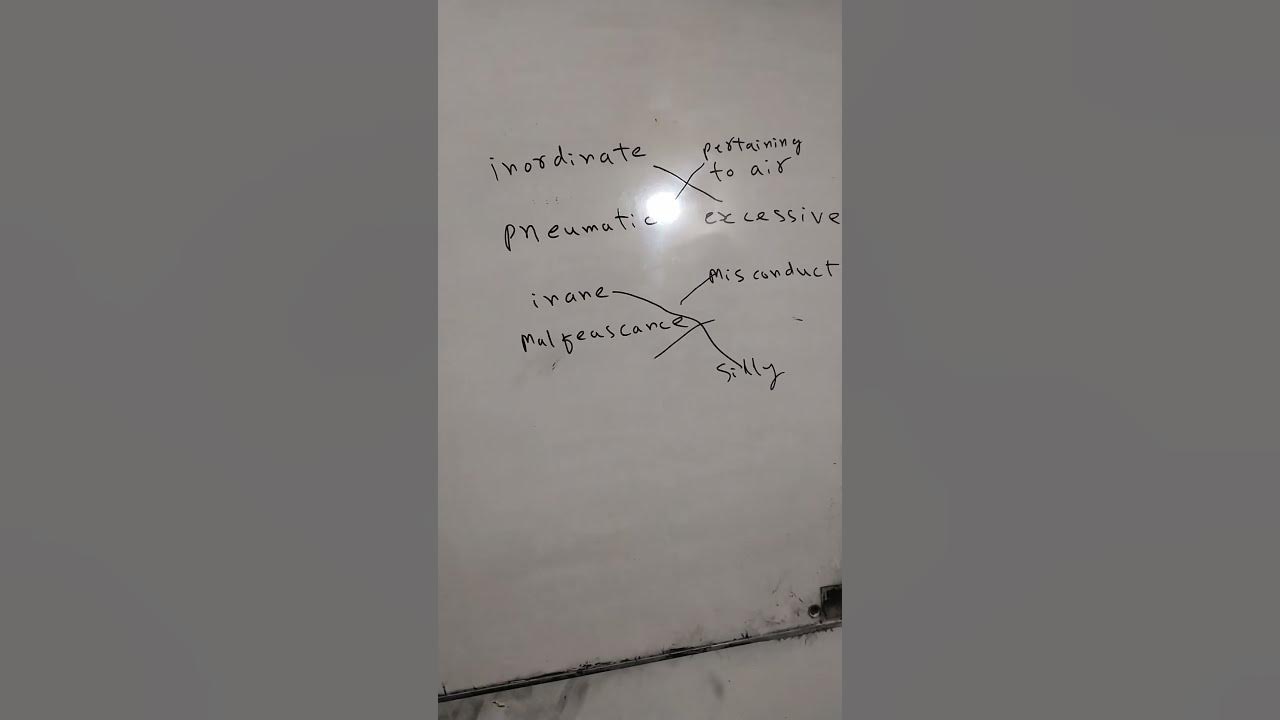 inordinate
pertaining
to air
pneumatic
excessive
inane
misconduct
malfeascance
silly